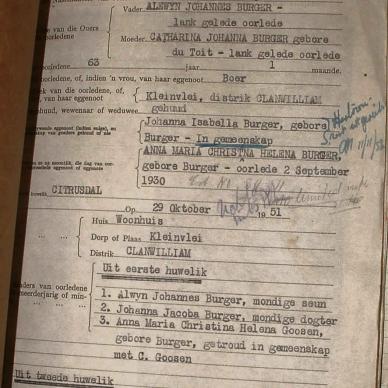 Vader ALEWYN JOHANNES BURGER -
lank gelede oorlede
van die Ouers
oorledene
Moeder CATHARINA JOHANNA BURGER gebore
du Toit - lank gelede oorlede
63 jaar 1 maande.
oorledene, of, indien 'n vrou, van haar eggenoot Boer
van die oorledene, of,
van haar eggenoot
Kleinvlei, distrik CLANWILLIAM
gehuud, wewenaar of weduwee gehuud
Johanna Isabella Burger, gebore
Burger - In gemeenskap
ANNA MARIA CHRISTINA HELENA BURGER,
gebore Burger - oorlede 2 September
1930
huwelik CITRUSDAL
Op 29 Oktober 1951
Huis Woonhuis
Dorp of Plaas Kleinvlei
Distrik CLANWILLIAM
Uit eerste huwelik
van oorledene
meerderjarig of min-
1. Alwyn Johannes Burger, mondige seun
2. Johanna Jacoba Burger, mondige dogter
3. Anna Maria Christina Helena Goosen,
gebore Burger, getroud in gemeenskap
met C. Goosen
Uit tweede huwelik